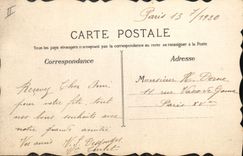 II
Paris 13 7/1920
CARTE POSTALE
Tous les pays étrangers n'acceptent pas la correspondance au verso, se renseigner à la Poste
Correspondance
Adresse
Recevez Cher Ami,
pour votre fête, tout
nos bons souhaits avec
notre grande amitié
Vos amis
Monsieur H.
11 rue Vasco de Gama
Paris XVme